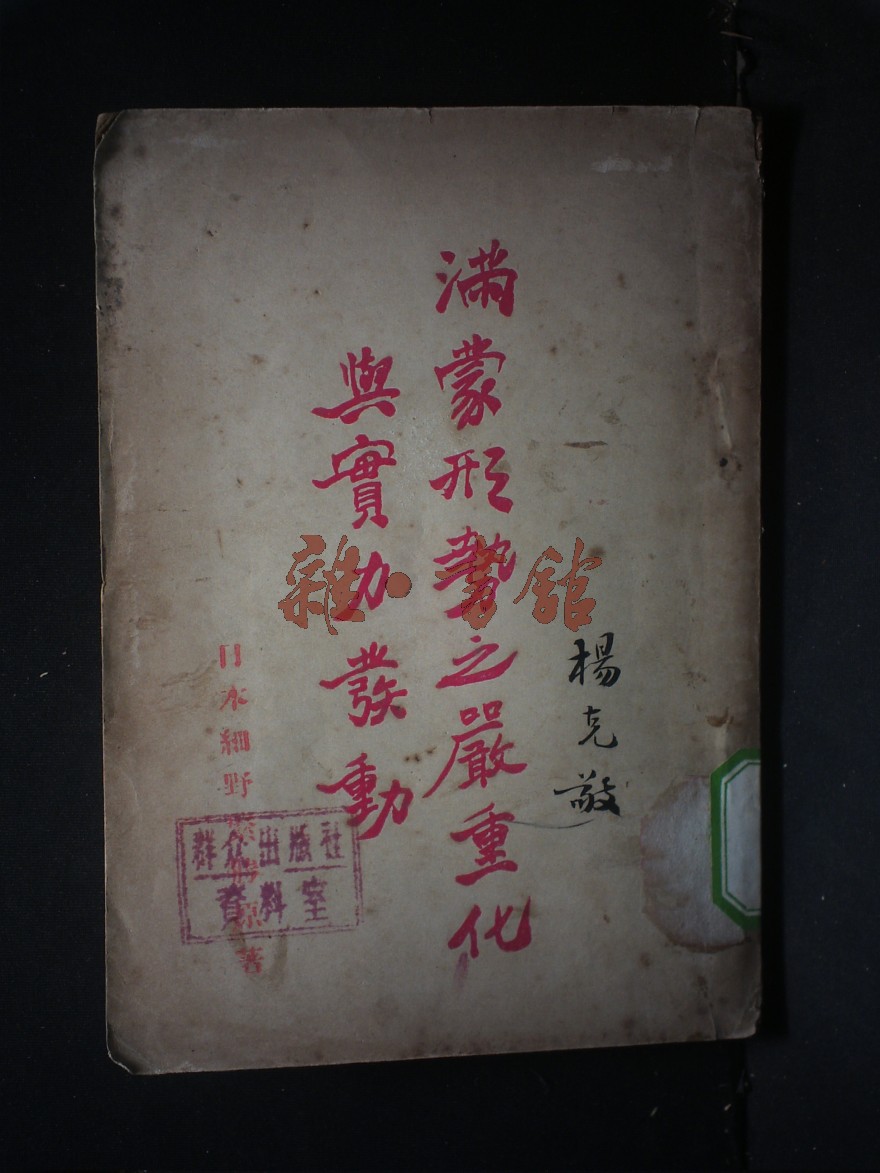 滿蒙形勢之嚴重化
與實力發動
楊克敬
日本細野繁勝原著
群众出版社
資料室
雜·書館